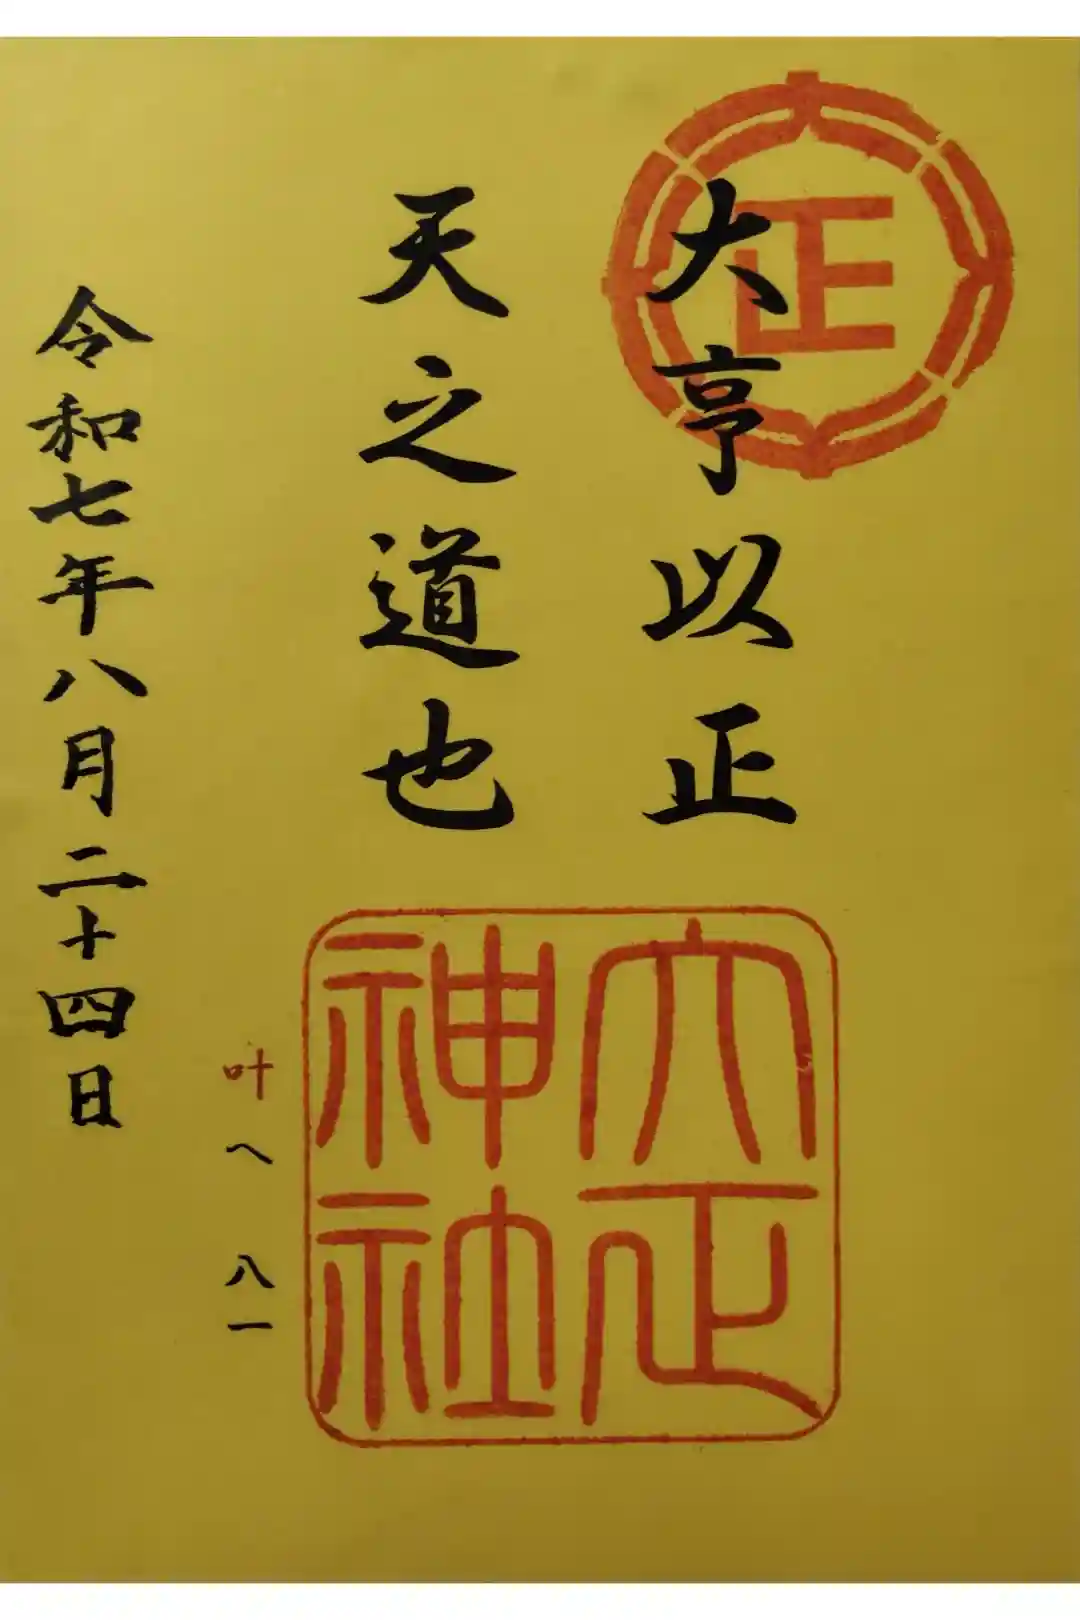 正
大亨以正
天之道也
大正
神社
叶へ 八一
令和七年八月二十四日